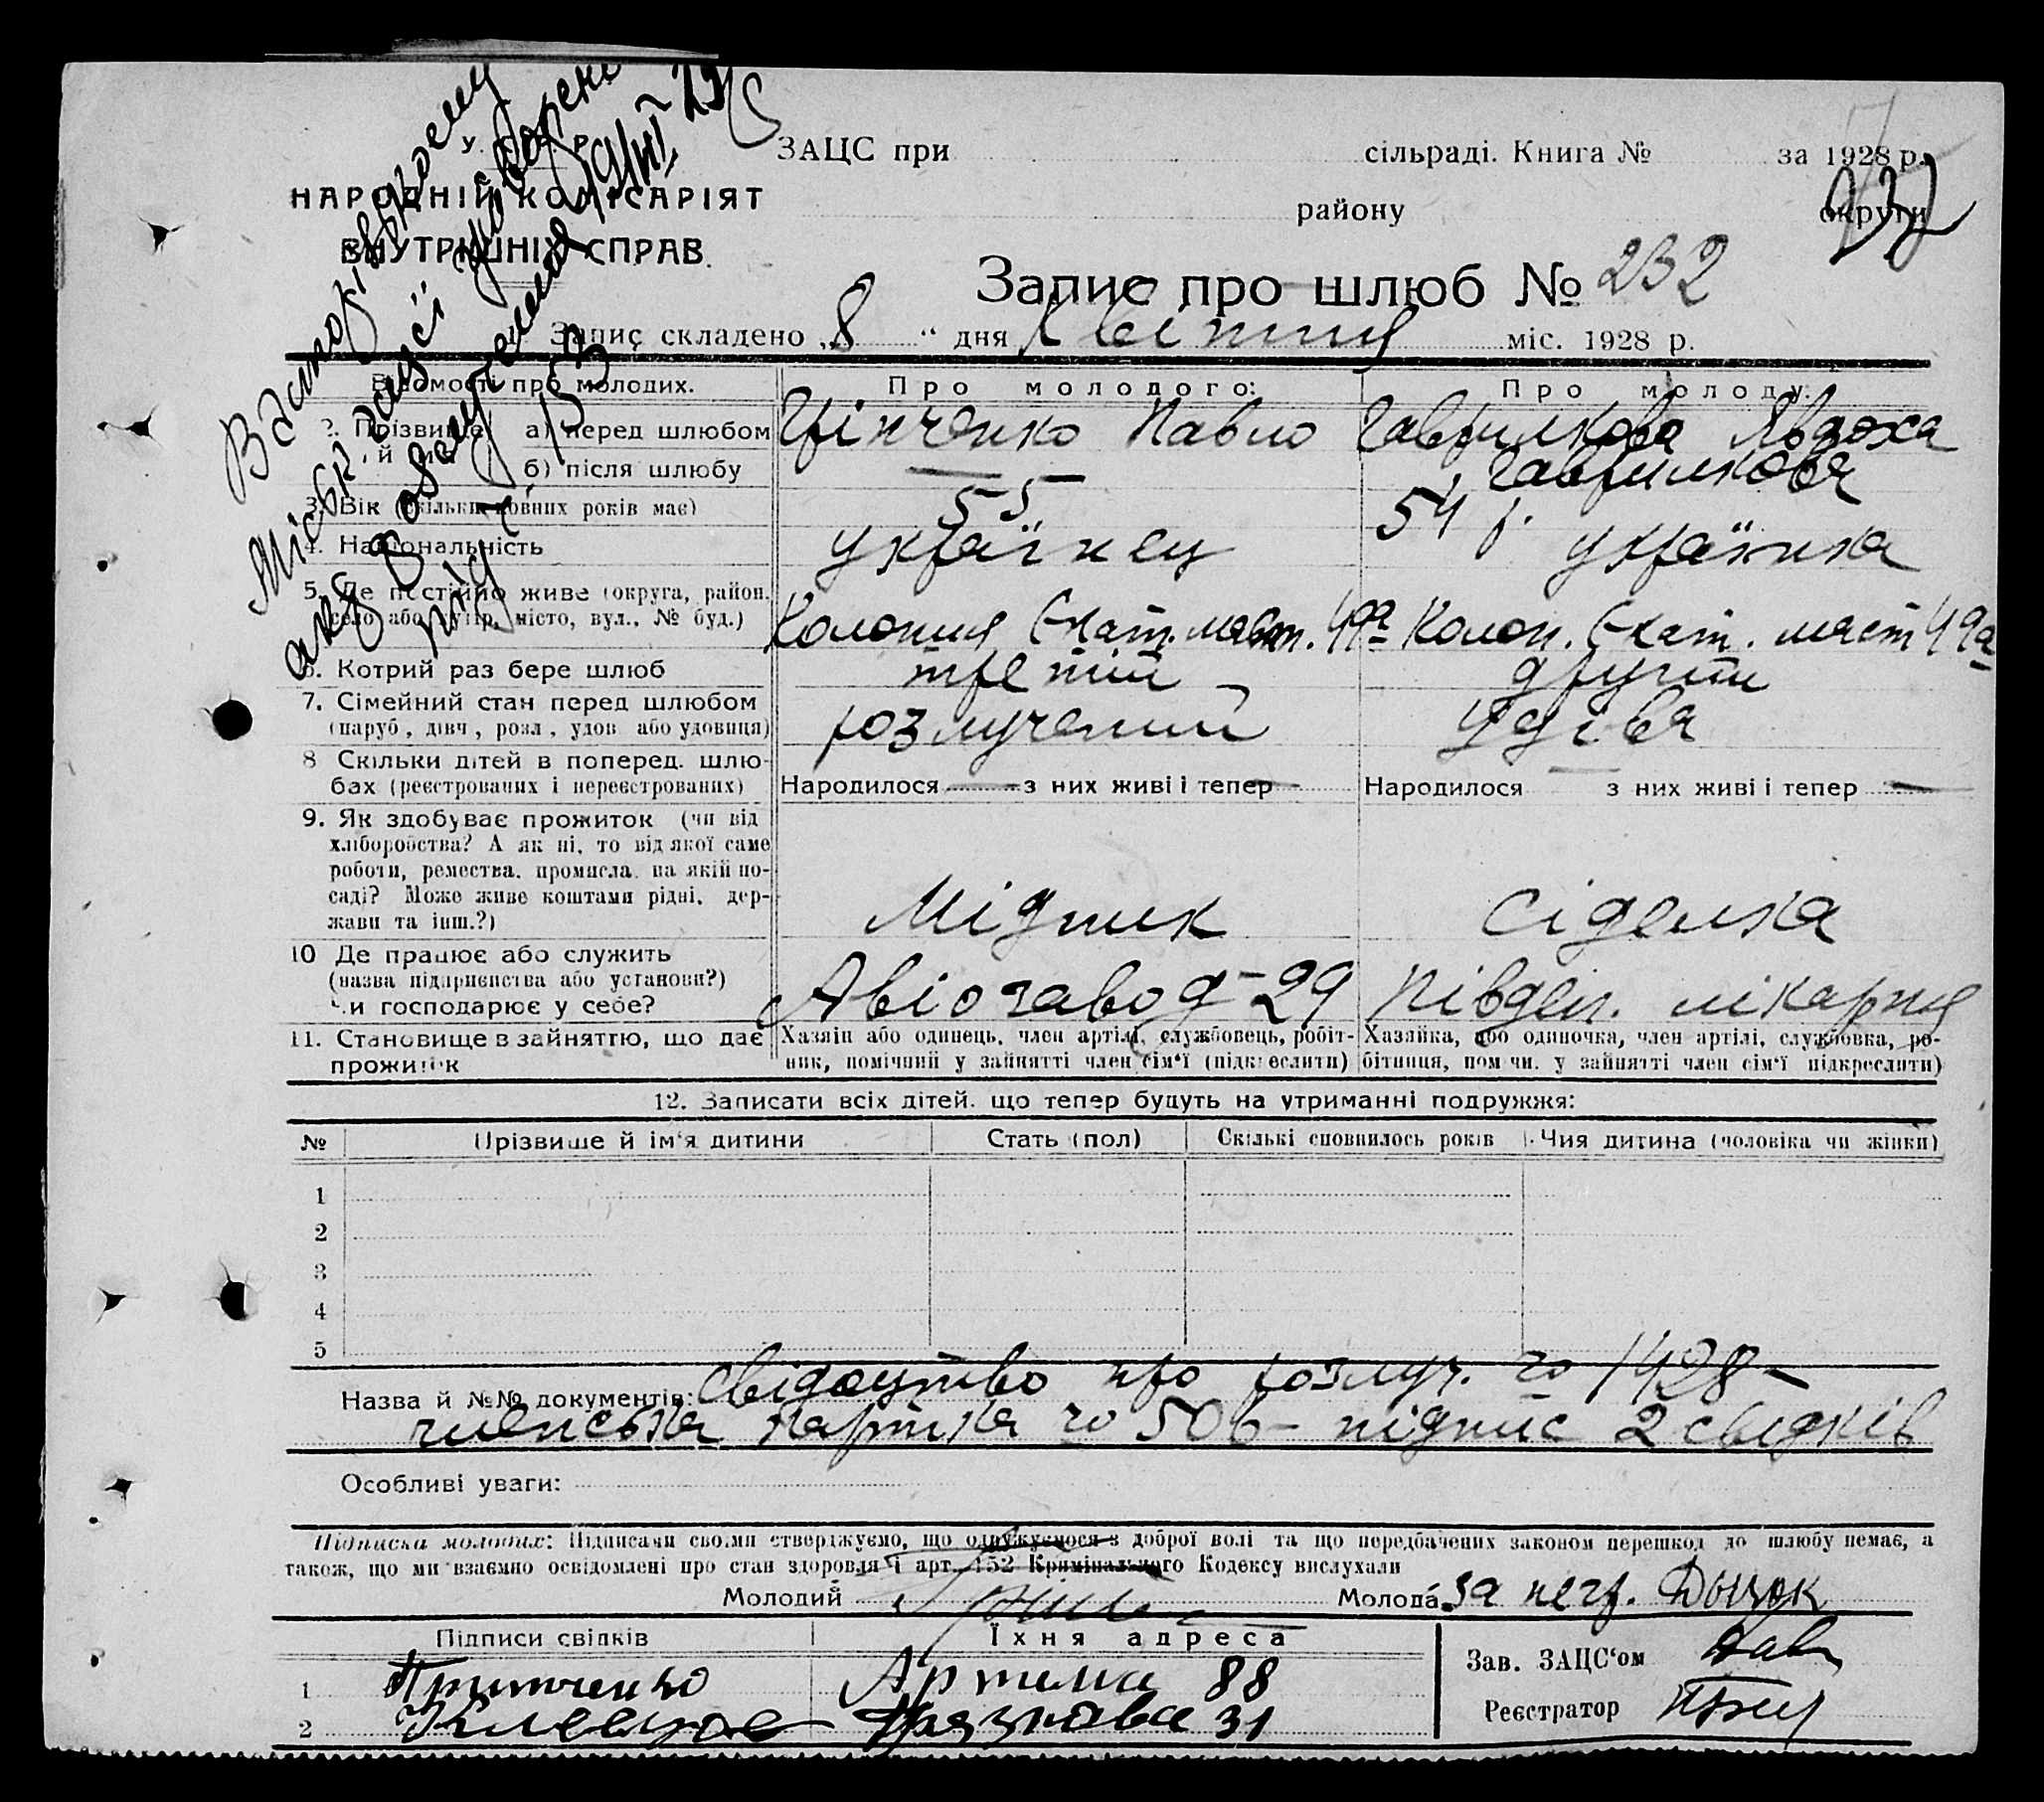 У. С. Р. Р.
НАРОДНІЙ КОМІСАРІЯТ
ВНУТРІШНІХ СПРАВ.
ЗАЦС при сільраді. Книга № за 1928 р.
району округи
232
Запис про шлюб № 232
1. Запис складено „8“ дня Квітня міс. 1928 р.
Відомості про молодих. Про молодого: Про молоду:
2. Прізвище й ім'я а) перед шлюбом Грінченко Павло Гаврилкова Явдоха
б) після шлюбу — — Гаврилкова
3. Вік (скільки повних років має) 55 54 р.
4. Національність українец українка
5. Де постійно живе (округа, район, село або хутір, місто, вул., № буд.) Колония Екат. маст. 49а Колон. Екат. маст 49а
6. Котрий раз бере шлюб третій другий
7. Сімейний стан перед шлюбом розлучений удіва
(паруб., дівч., розл., удов. або удовиця)
8 Скільки дітей в поперед. шлюбах (реєстрованих і нереєстрованих) Народилося — з них живі і тепер — Народилося — з них живі і тепер —
9. Як здобуває прожиток (чи від
хліборобства? А як ні, то від якої саме
роботи, ремества, промисла, на якій по-
саді? Може живе коштами рідні, дер-
жави та інш.?) Мідник Сіделка
10 Де працює або служить
(назва підприємства або установи?)
Чи господарює у себе? Авіозавод-29 Півден. лікарня
11. Становище в зайняттю, що дає прожиток
Хазяїн або одинець, член артілі, службовець, робіт-
ник, помічний у зайнятті член сім'ї (підкреслити)
Хазяйка, або одиночка, член артілі, службовка, ро-
бітниця, помічн. у зайнятті член сім'ї підкреслити)
12. Записати всіх дітей, що тепер будуть на утриманні подружжя:
№ Прізвище й ім'я дитини Стать (пол) Скількі сповнилось років Чия дитина (чоловіка чи жінки)
1
2
3
4
5
Назва й №№ документів: Свідоцтво про розлуч. №1428 –
членська картка № 506 – підпис 2 свідків
Особливі уваги:
Підписка молодих: Підписами своїми стверджуємо, що одружуємося з доброї волі та що передбачених законом перешкод до шлюбу немає, а
також, що ми взаємно освідомлені про стан здоровля і арт. 152 Кримінального Кодексу вислухали
Молодий Молода за негр. Дыцок
Підписи свідків Їхня адреса
Зав. ЗАЦС'ом
1 Притченко Артема 88
Реєстратор
2 31